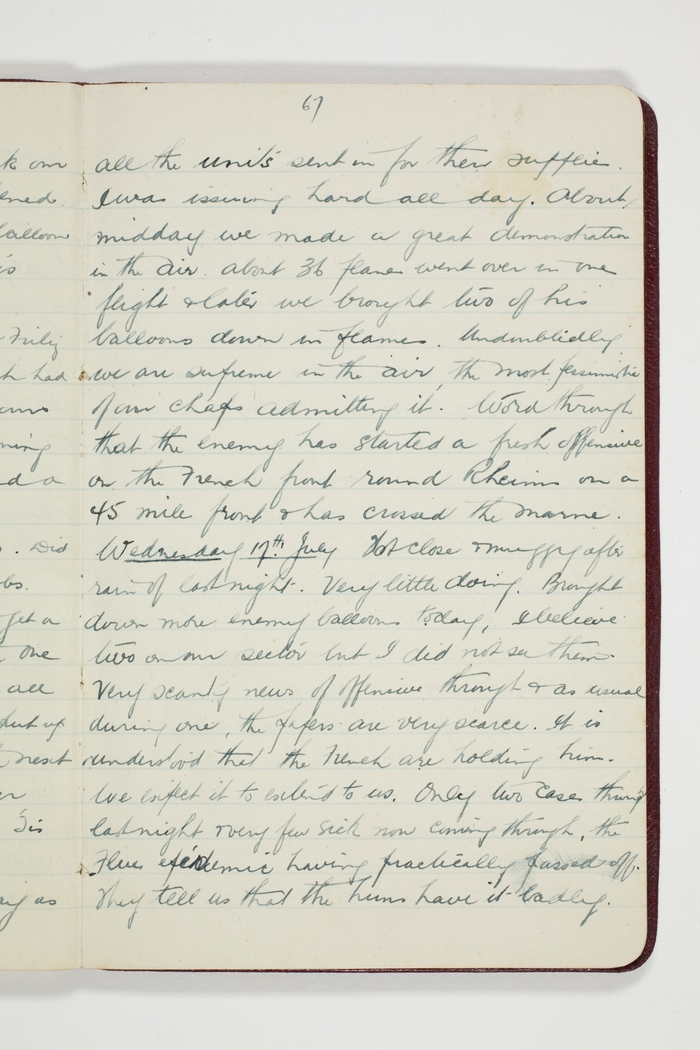 67
all the units sent in for their supplies.
I was issuing hard all day. About
midday we made a great demonstration
in the air. about 36 planes went over in one
flight & later we brought two of his
balloons down in flames. Undoubtedly
we are supreme in the air, the most pessimistic
of our chaps admitting it. Word through
that the enemy has started a fresh offensive
on the French front round Rheims on a
45 mile front & has crossed the Marne.
Wednesday 17th July Hot close & muggy after
rain of last night. Very little doing. Brought
down more enemy balloons today, I believe
two on our sector but I did not see them.
Very scanty news of offensive through & as usual
during one, the papers are very scarce. It is
understood that the French are holding him.
We expect it to extend to us. Only two cases through
last night & very few sick now coming through, the
Flue epidemic having practically passed off.
They tell us that the huns have it badly.
k our
ened
balloon
is
h had
ning
d a
. Did
bs.
get a
one
all
put up
er
as